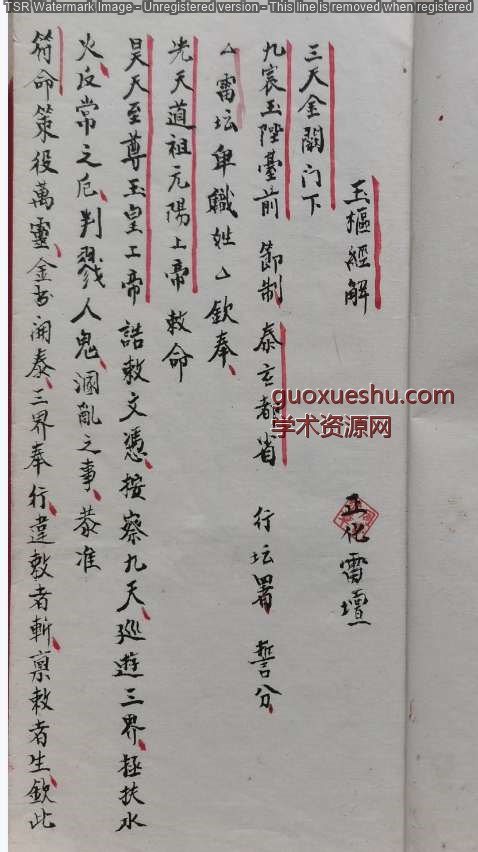 TSR Watermark Image - Unregistered version - This line is removed when registered
玉樞經解 正化雷壇
三天金闕门下
九宸玉陛臺前 御制 泰玄都省 行坛署 誓分
雷坛卑職姓 欽奉
先天道祖元陽上帝敕命
昊天至尊玉皇上帝 誥敕文憑按察九天巡遊三界拯扶水
火反常之厄判戮人鬼溷亂之事恭准
符命策役萬靈金书開泰三界奉行違敕者斬禀敕者生欽此
guoxueshu.com
学术资源网